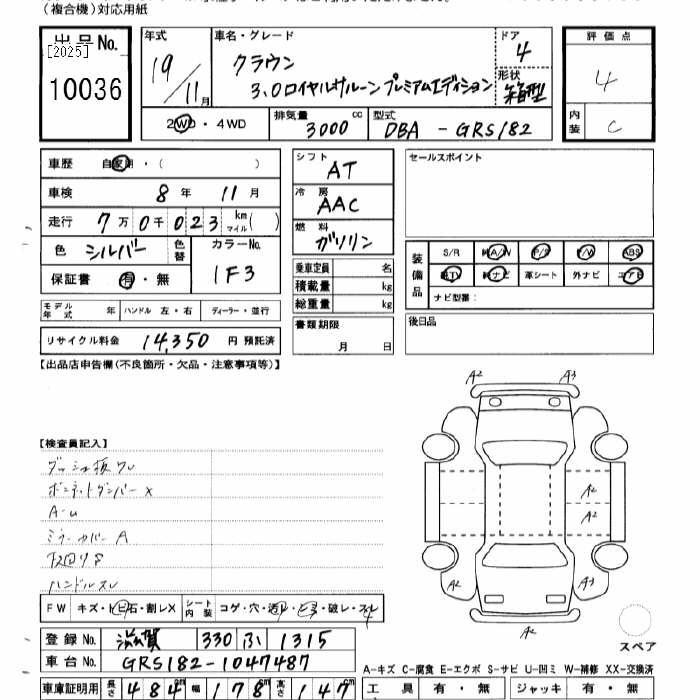 (複合機)対応用紙
出品No.
[2025]
10036
年式
19/11月
車名・グレード
クラウン
3.0ロイヤルサルーンプレミアムエディション
ドア
4
形状
箱型
評価点
4
内装
C
2WD・4WD
排気量
3000cc
型式
DBA-GRS182
車歴 自家用・( )
車検 8年 11月
走行 7万0千023 km マイル( )
色 シルバー 色替
カラーNo.
1F3
保証書 有・無
モデル年式 年 ハンドル 左・右 ディーラー・並行
リサイクル料金 14,350 円 預託済
シフト
AT
冷房
AAC
燃料
ガソリン
乗車定員 名
積載量 kg
総重量 kg
書類期限
月 日
セールスポイント
装備品
S/R 純A/W P/S P/W ABS
純TV 純ナビ 革シート 外ナビ エアB
ナビ型番:
後日品
【出品店申告欄(不良箇所・欠品・注意事項等)】
A2 A3
【検査員記入】
ダッシュ板ワレ
ボンネットダンパーX
A-U
ミラーカバーA
下回りS
ハンドルスレ
A2
A2
A2 A3
A2
FW キズ・トビ石・割レX シート内装 コゲ・穴・汚レ・ヒヨ・破レ・スレ
スペア
登録No. 滋賀 330 ふ 1315
車台No. GRS182-1047487
A-キズ C-腐食 E-エクボ S-サビ U-凹ミ W-補修 XX-交換済
車庫証明用 長さ 484cm 幅 178cm 高さ 147cm
工具 有・無 ジャッキ 有・無